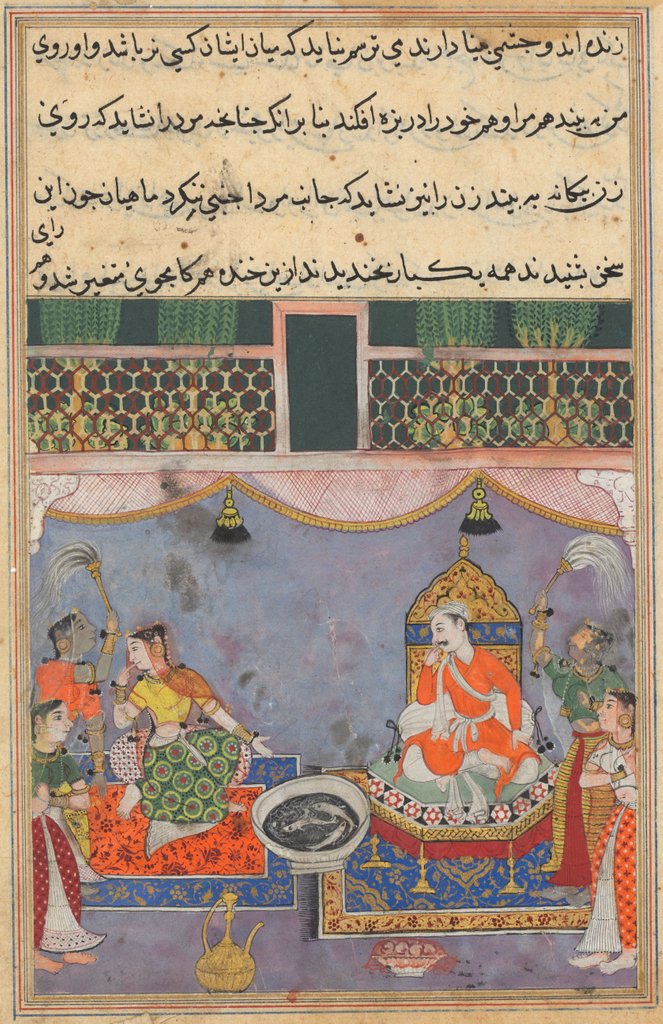 زنده اند و جشمي بینا دارند مي ترسم نباید که میان ایشان کسي نر باشد و او روي
من به بیند هم مرا و هم خود را در بزه افکند بنا بر انکه جنانجه مرد را نشاید که روي
زن بیکانه به بیند زن را نیز نشاید که جانب مرد اجنبي نکرد ماهیان جون این
رای
سخن بشنیدند همه یکبار بخندیدند از این خنده هم کامجوي متغیر شد و هم